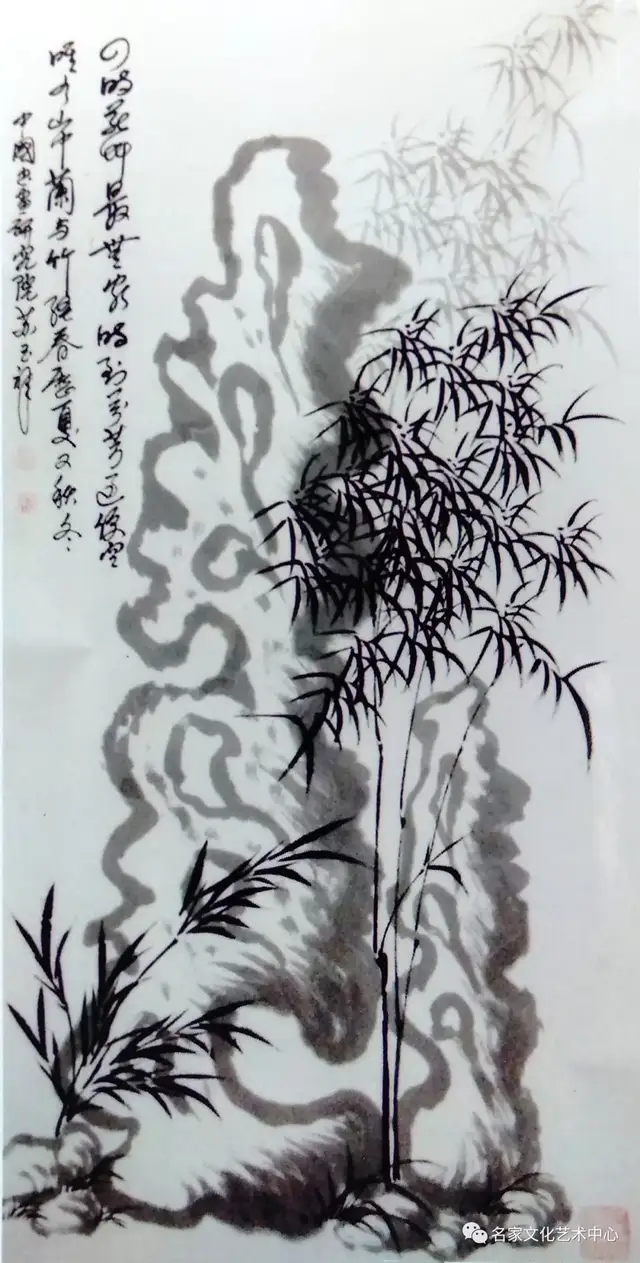 四时花草最無穷时到芬芳过便空
唯有山中蘭与竹经春歷夏又秋冬
中國书画研究院苏玉祥
名家文化艺术中心